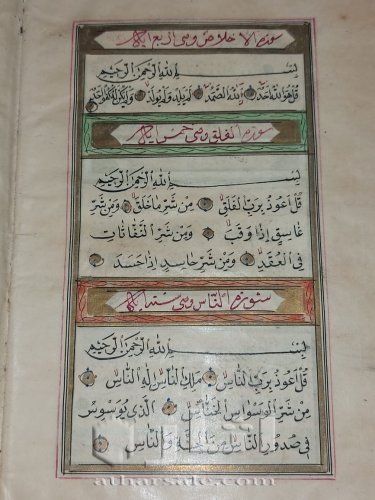 سورة الاخلاص وهي اربع ايات
بسم الله الرحمن الرحيم
قُلْ هُوَ اللهُ اَحَدٌ اَللهُ الصَّمَدُ لَمْ يَلِدْ وَلَمْ يُولَدْ وَلَمْ يَكُنْ لَهُ كُفُوًا اَحَدٌ
سورة الفلق وهي خمس ايات
بسم الله الرحمن الرحيم
قُلْ اَعُوذُ بِرَبِّ الْفَلَقِ مِنْ شَرِّ مَا خَلَقَ وَمِنْ شَرِّ
غَاسِقٍ اِذَا وَقَبَ وَمِنْ شَرِّ النَّفَّاثَاتِ
فِي الْعُقَدِ وَمِنْ شَرِّ حَاسِدٍ اِذَا حَسَدَ
سورة الناس وهي ست ايات
بسم الله الرحمن الرحيم
قُلْ اَعُوذُ بِرَبِّ النَّاسِ مَلِكِ النَّاسِ اِلٰهِ النَّاسِ
مِنْ شَرِّ الْوَسْوَاسِ الْخَنَّاسِ الَّذِي يُوَسْوِسُ
فِي صُدُورِ النَّاسِ مِنَ الْجِنَّةِ وَالنَّاسِ
atharsale.com